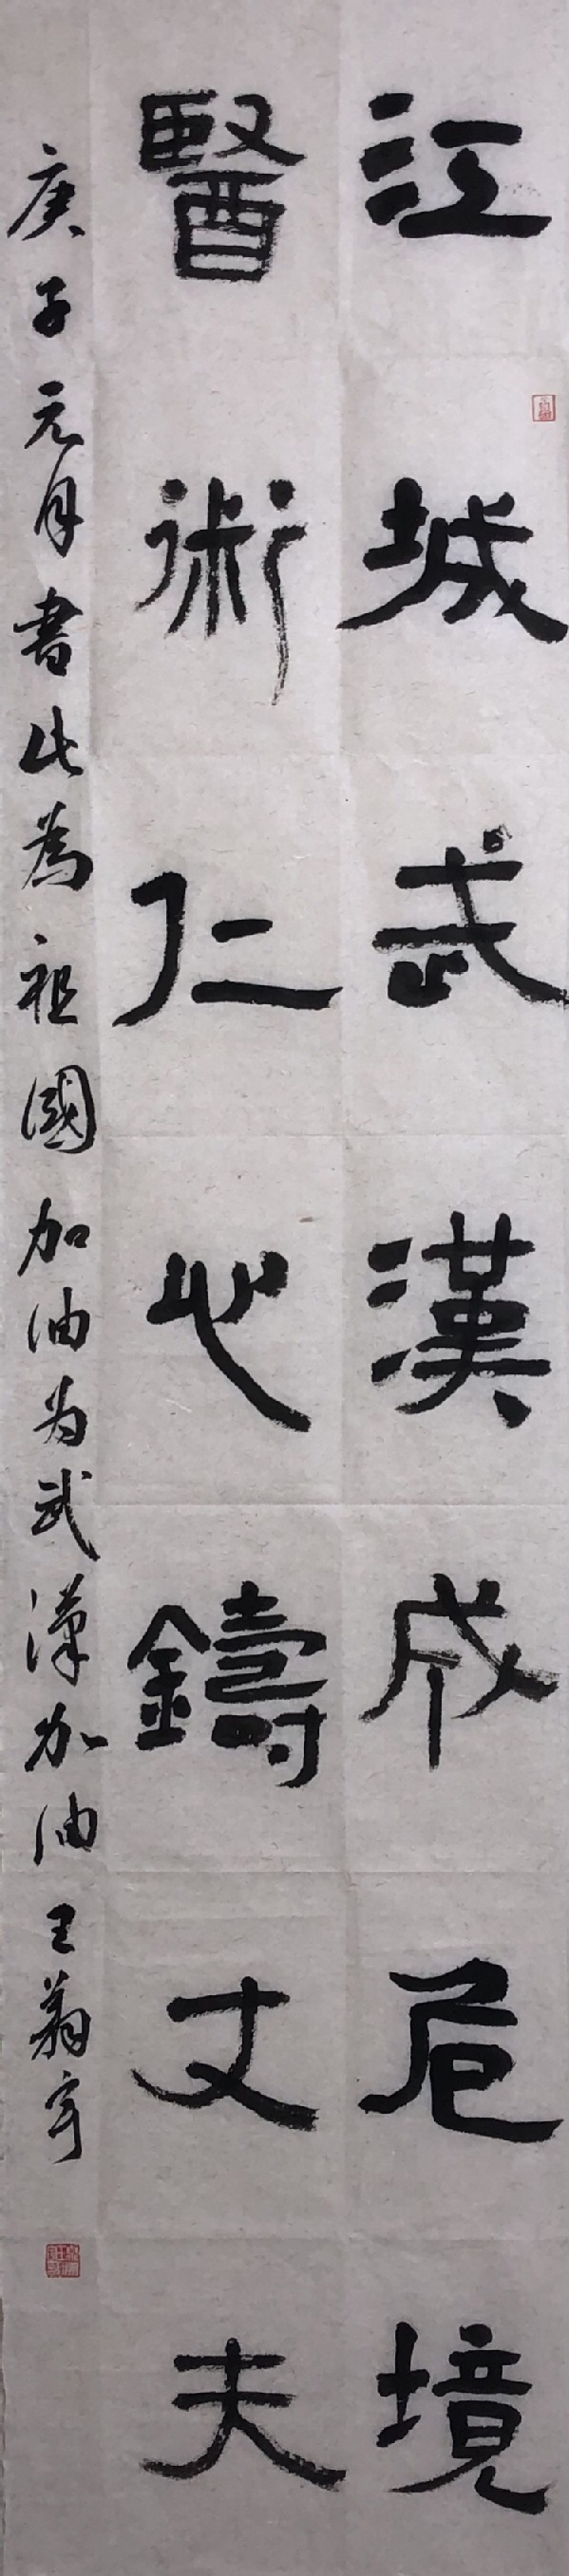 江城武漢成危境
醫術仁心鑄丈夫
庚子元月書此為祖國加油为武漢加油王翦宇